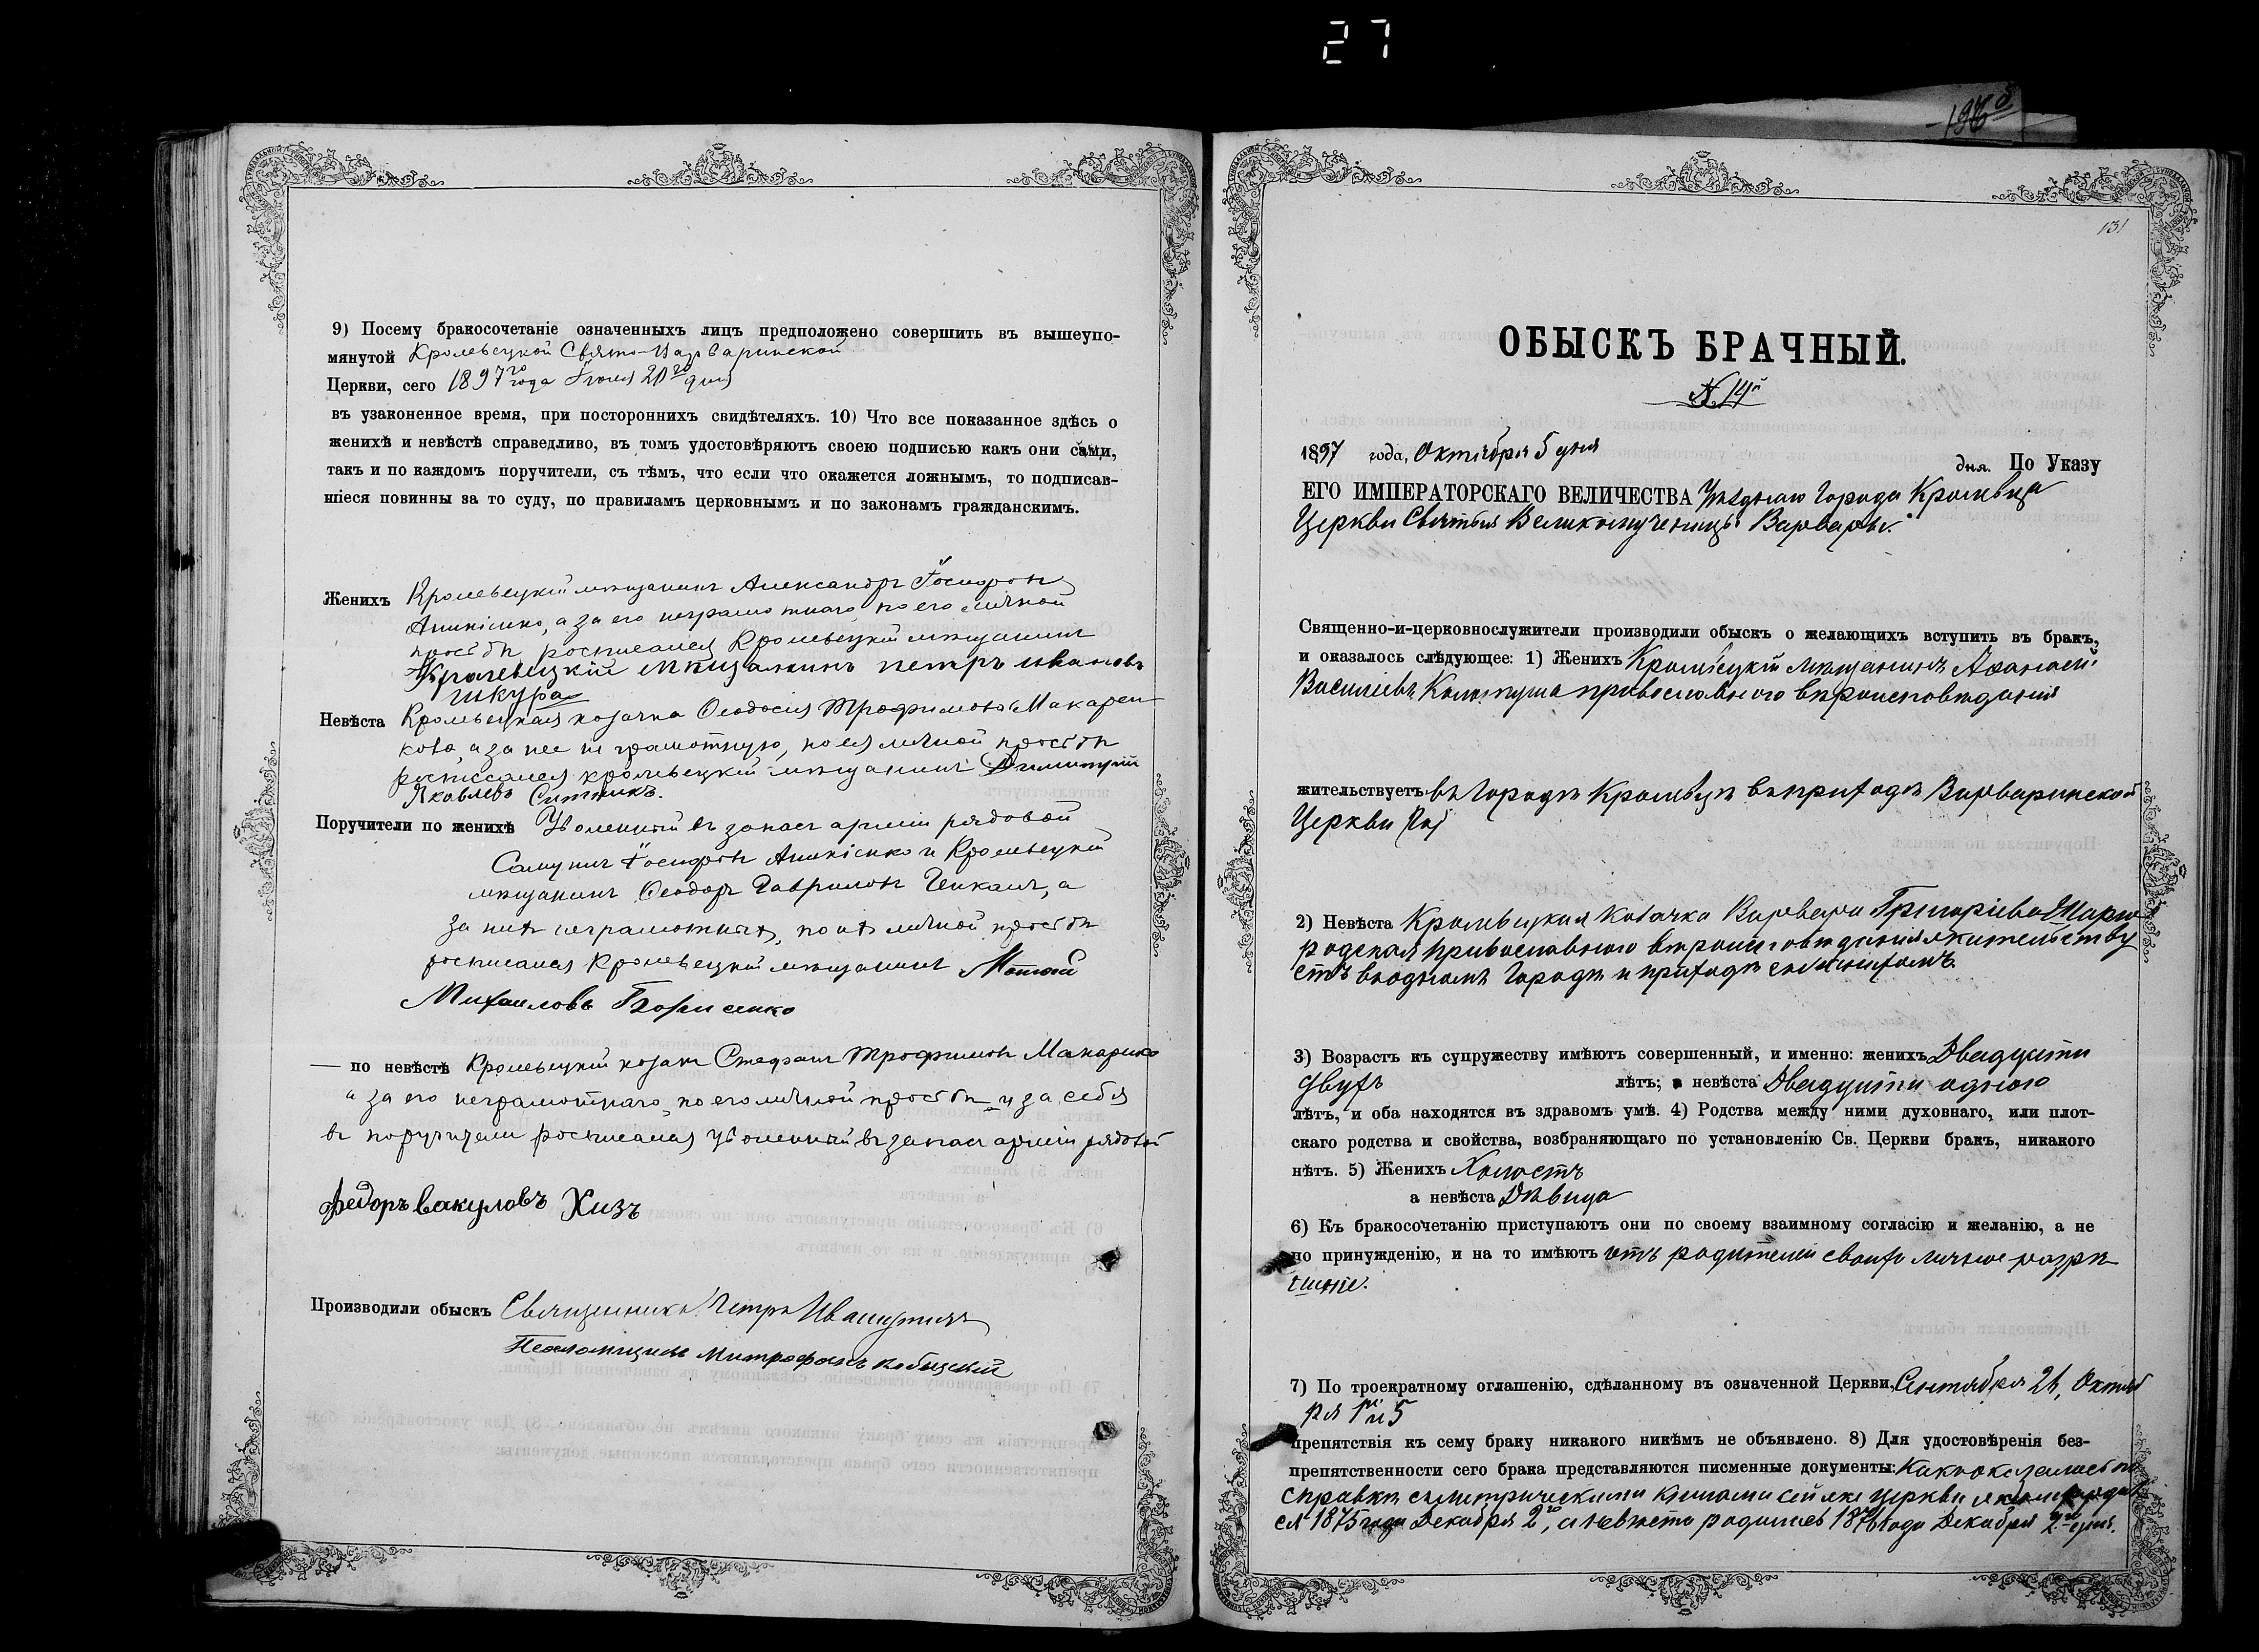 27
1968
9) Посему бракосочетаніе означенныхъ лицъ предположено совершить въ вышеупо-
мянутой Кролевецкой Свято-Варваринской
Церкви, сего 1897го года Іюля 20го дня
въ узаконенное время, при постороннихъ свидѣтеляхъ. 10) Что все показанное здѣсь о
женихѣ и невѣстѣ справедливо, въ томъ удостовѣряютъ своею подписью какъ они сами,
такъ и по каждомъ поручители, съ тѣмъ, что если что окажется ложнымъ, то подписав-
шіеся повинны за то суду, по правиламъ церковнымъ и по законамъ гражданскимъ.
Женихъ Кролевецкій мѣщанинъ Александръ Іосифовъ
а за его неграмотнаго, по его личной
просьбѣ росписался Кролевецкій мѣщанинъ
Кролевецкій мѣщанинъ петръ ивановъ
шкура
Невѣста Кролевецкая козачка Ѳеодосія Трофимова Макарен-
кова, а за нее не грамотную, по ея личной просьбѣ
росписался кролевецкій мѣщанинъ Димитрій
Яковлевъ Ситникъ.
Поручители по женихѣ Уволенный въ запасъ арміи рядовой
Іосифовъ и Кролевецкій
мѣщанинъ Ѳеодоръ Гавриловъ а
за нихъ неграмотныхъ, по ихъ личной просьбѣ
росписался Кролевецкій мѣщанинъ
Михаиловъ Борисенко
— по невѣстѣ Кролевецкій козакъ Стефанъ Трофимовъ Макаренко
а за его неграмотнаго, по его личной просьбѣ и за себя
въ поручители росписался уволенный въ запасъ арміи рядовой
Федоръ вакуловъ Хизъ
Производили обыскъ Священникъ Петръ
Псаломщикъ Митрофанъ
131
ОБЫСКЪ БРАЧНЫЙ.
№ 14й
1897 года, Октября 5 дня дня. По Указу
ЕГО ИМПЕРАТОРСКАГО ВЕЛИЧЕСТВА Уѣзднаго Города Кролевца
Церкви Святыя Великомученицы Варвары.
Священно-и-церковнослужители производили обыскъ о желающихъ вступить въ бракъ,
и оказалось слѣдующее: 1) Женихъ Кролевецкій мѣщанинъ Аѳанасій
Василіевъ православнаго вѣроисповѣданія
жительствуетъ въ Городѣ Кролевцѣ въ приходѣ Варваринской
Церкви
2) Невѣста Кролевецкая Козачка Варвара Григоріева
православнаго вѣроисповѣданія жительству
етъ въ одномъ Городѣ и приходѣ съ женихомъ.
3) Возрастъ къ супружеству имѣютъ совершенный, и именно: женихъ Двадцати
двухъ лѣтъ; а невѣста Двадцати одного
лѣтъ, и оба находятся въ здравомъ умѣ. 4) Родства между ними духовнаго, или плот-
скаго родства и свойства, возбраняющаго по установленію Св. Церкви бракъ, никакого
нѣтъ. 5) Женихъ Холостъ
а невѣста Дѣвица
6) Къ бракосочетанію приступаютъ они по своему взаимному согласію и желанію, а не
по принужденію, и на то имѣютъ отъ родителей своихъ личное разрѣ
шеніе.
7) По троекратному оглашенію, сдѣланному въ означенной Церкви, Сентября Октяб
ря 1го и 5
препятствія къ сему браку никакого никѣмъ не объявлено. 8) Для удостовѣренія без-
препятственности сего брака представляются писменные документы: Какъ оказалось по
справкѣ съ метрическими книгами сей же церкви женихъ родил
ся 1875 года Декабря 2го, а невѣста родилась 1876 года Декабря дня.